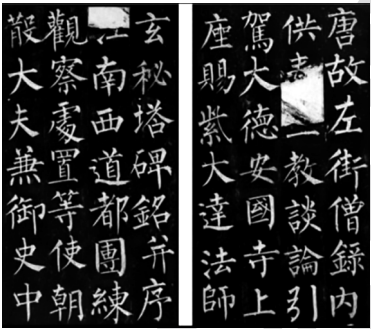 唐故左街僧錄内
供教談論引
駕大德安國寺上
座賜紫大達法師
玄秘塔碑銘并序
南西道都團練
觀察處置等使朝
散大夫兼御史中